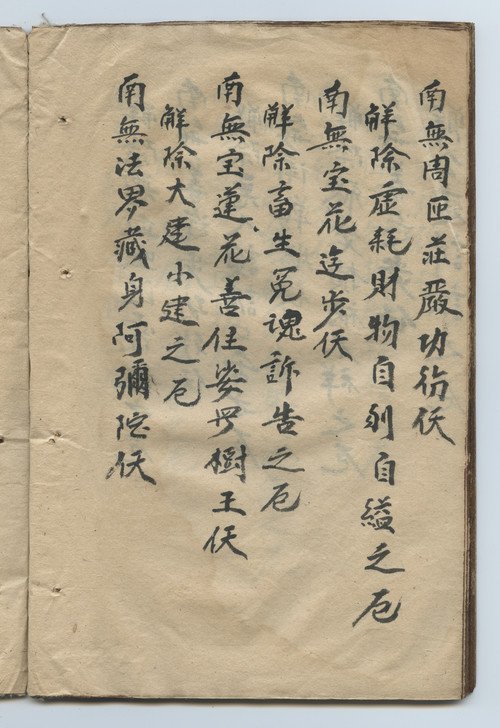 南無周匝莊嚴功德仸
觧除虛耗財物自刎自縊之厄
南無宝花遊步仸
觧除畜生冤魂訴告之厄
南無宝蓮花善住娑罗樹王仸
觧除大建小建之厄
南無法界藏身阿彌陀仸